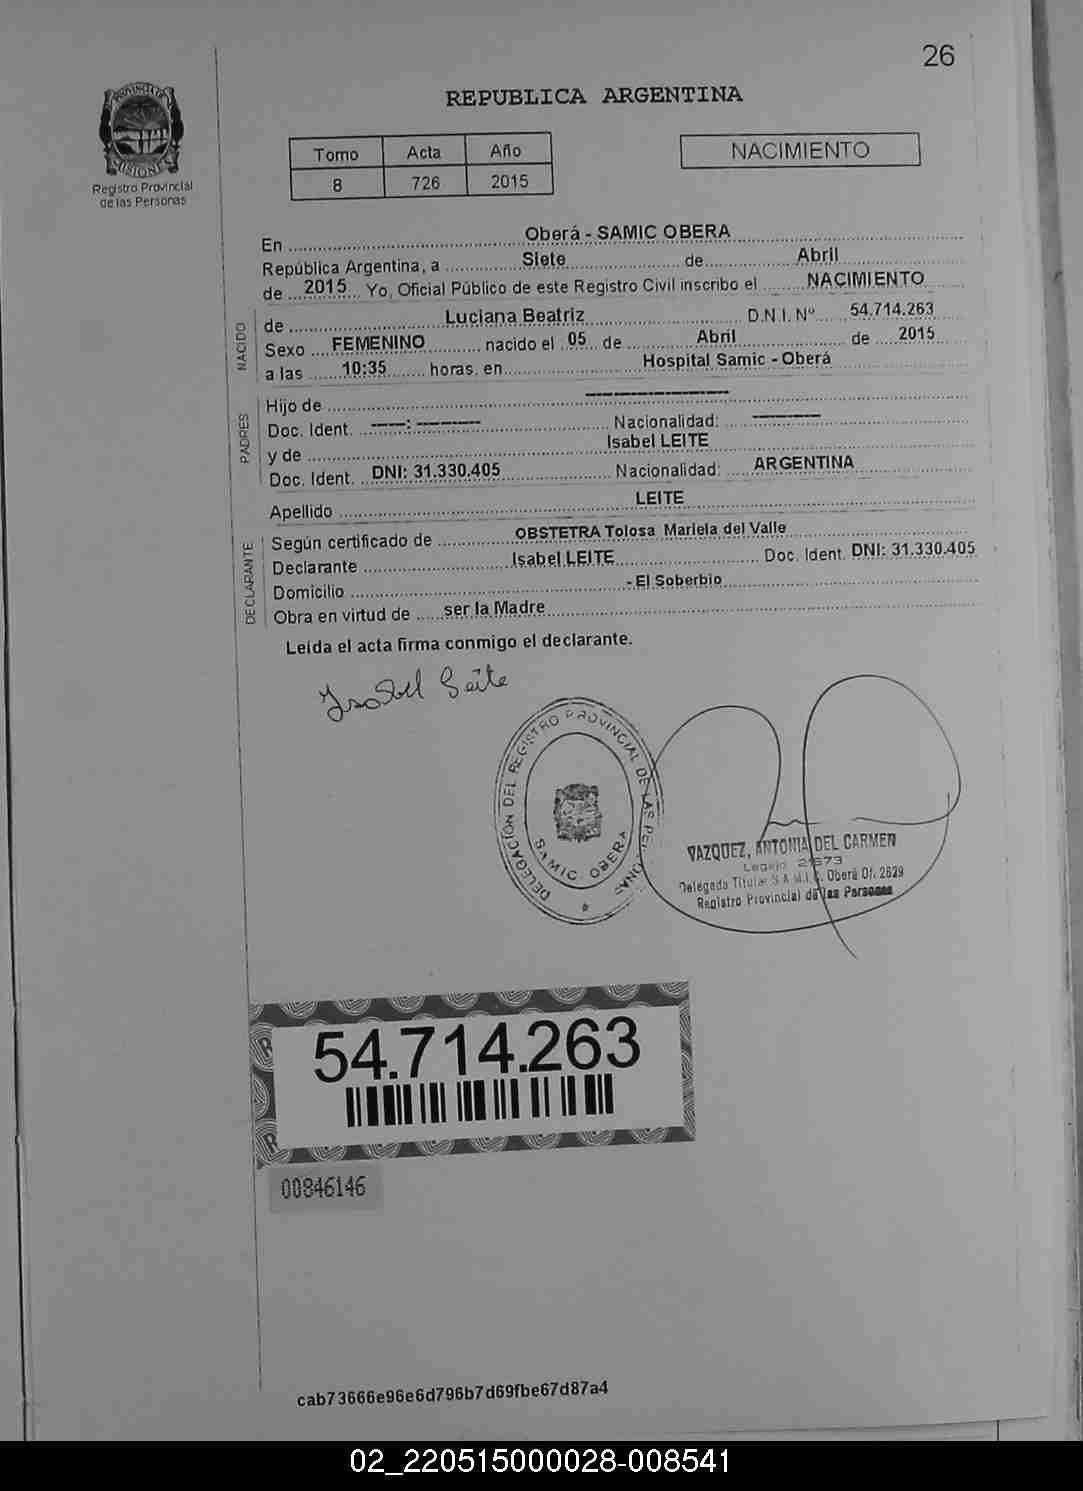 26
PROVINCIA DE
MISIONES
Registro Provincial
de las Personas
REPUBLICA ARGENTINA
Tomo Acta Año
8 726 2015
NACIMIENTO
En Oberá - SAMIC OBERA
República Argentina, a Siete de Abril
de 2015 Yo, Oficial Público de este Registro Civil inscribo el NACIMIENTO
NACIDO
de Luciana Beatriz D.N.I. Nº 54.714.263
Sexo FEMENINO nacido el 05 de Abril de 2015
a las 10:35 horas. en Hospital Samic - Oberá
PADRES
Hijo de ----------------------
Doc. Ident. -----: ---------- Nacionalidad: ----------
y de Isabel LEITE
Doc. Ident. DNI: 31.330.405 Nacionalidad: ARGENTINA
Apellido LEITE
DECLARANTE
Según certificado de OBSTETRA Tolosa Mariela del Valle
Declarante Isabel LEITE Doc. Ident. DNI: 31.330.405
Domicilio - El Soberbio
Obra en virtud de ser la Madre
Leída el acta firma conmigo el declarante.
Isabel Leite
DELEGACIÓN DEL REGISTRO PROVINCIAL DE LAS PERSONAS
SAMIC OBERA
VAZQUEZ, ANTONIA DEL CARMEN
Legajo
Delegada Titular S.A.M.I.C. Oberá Of. 2629
Registro Provincial de las Personas
54.714.263
00846146
cab73666e96e6d796b7d69fbe67d87a4
02_220515000028-008541